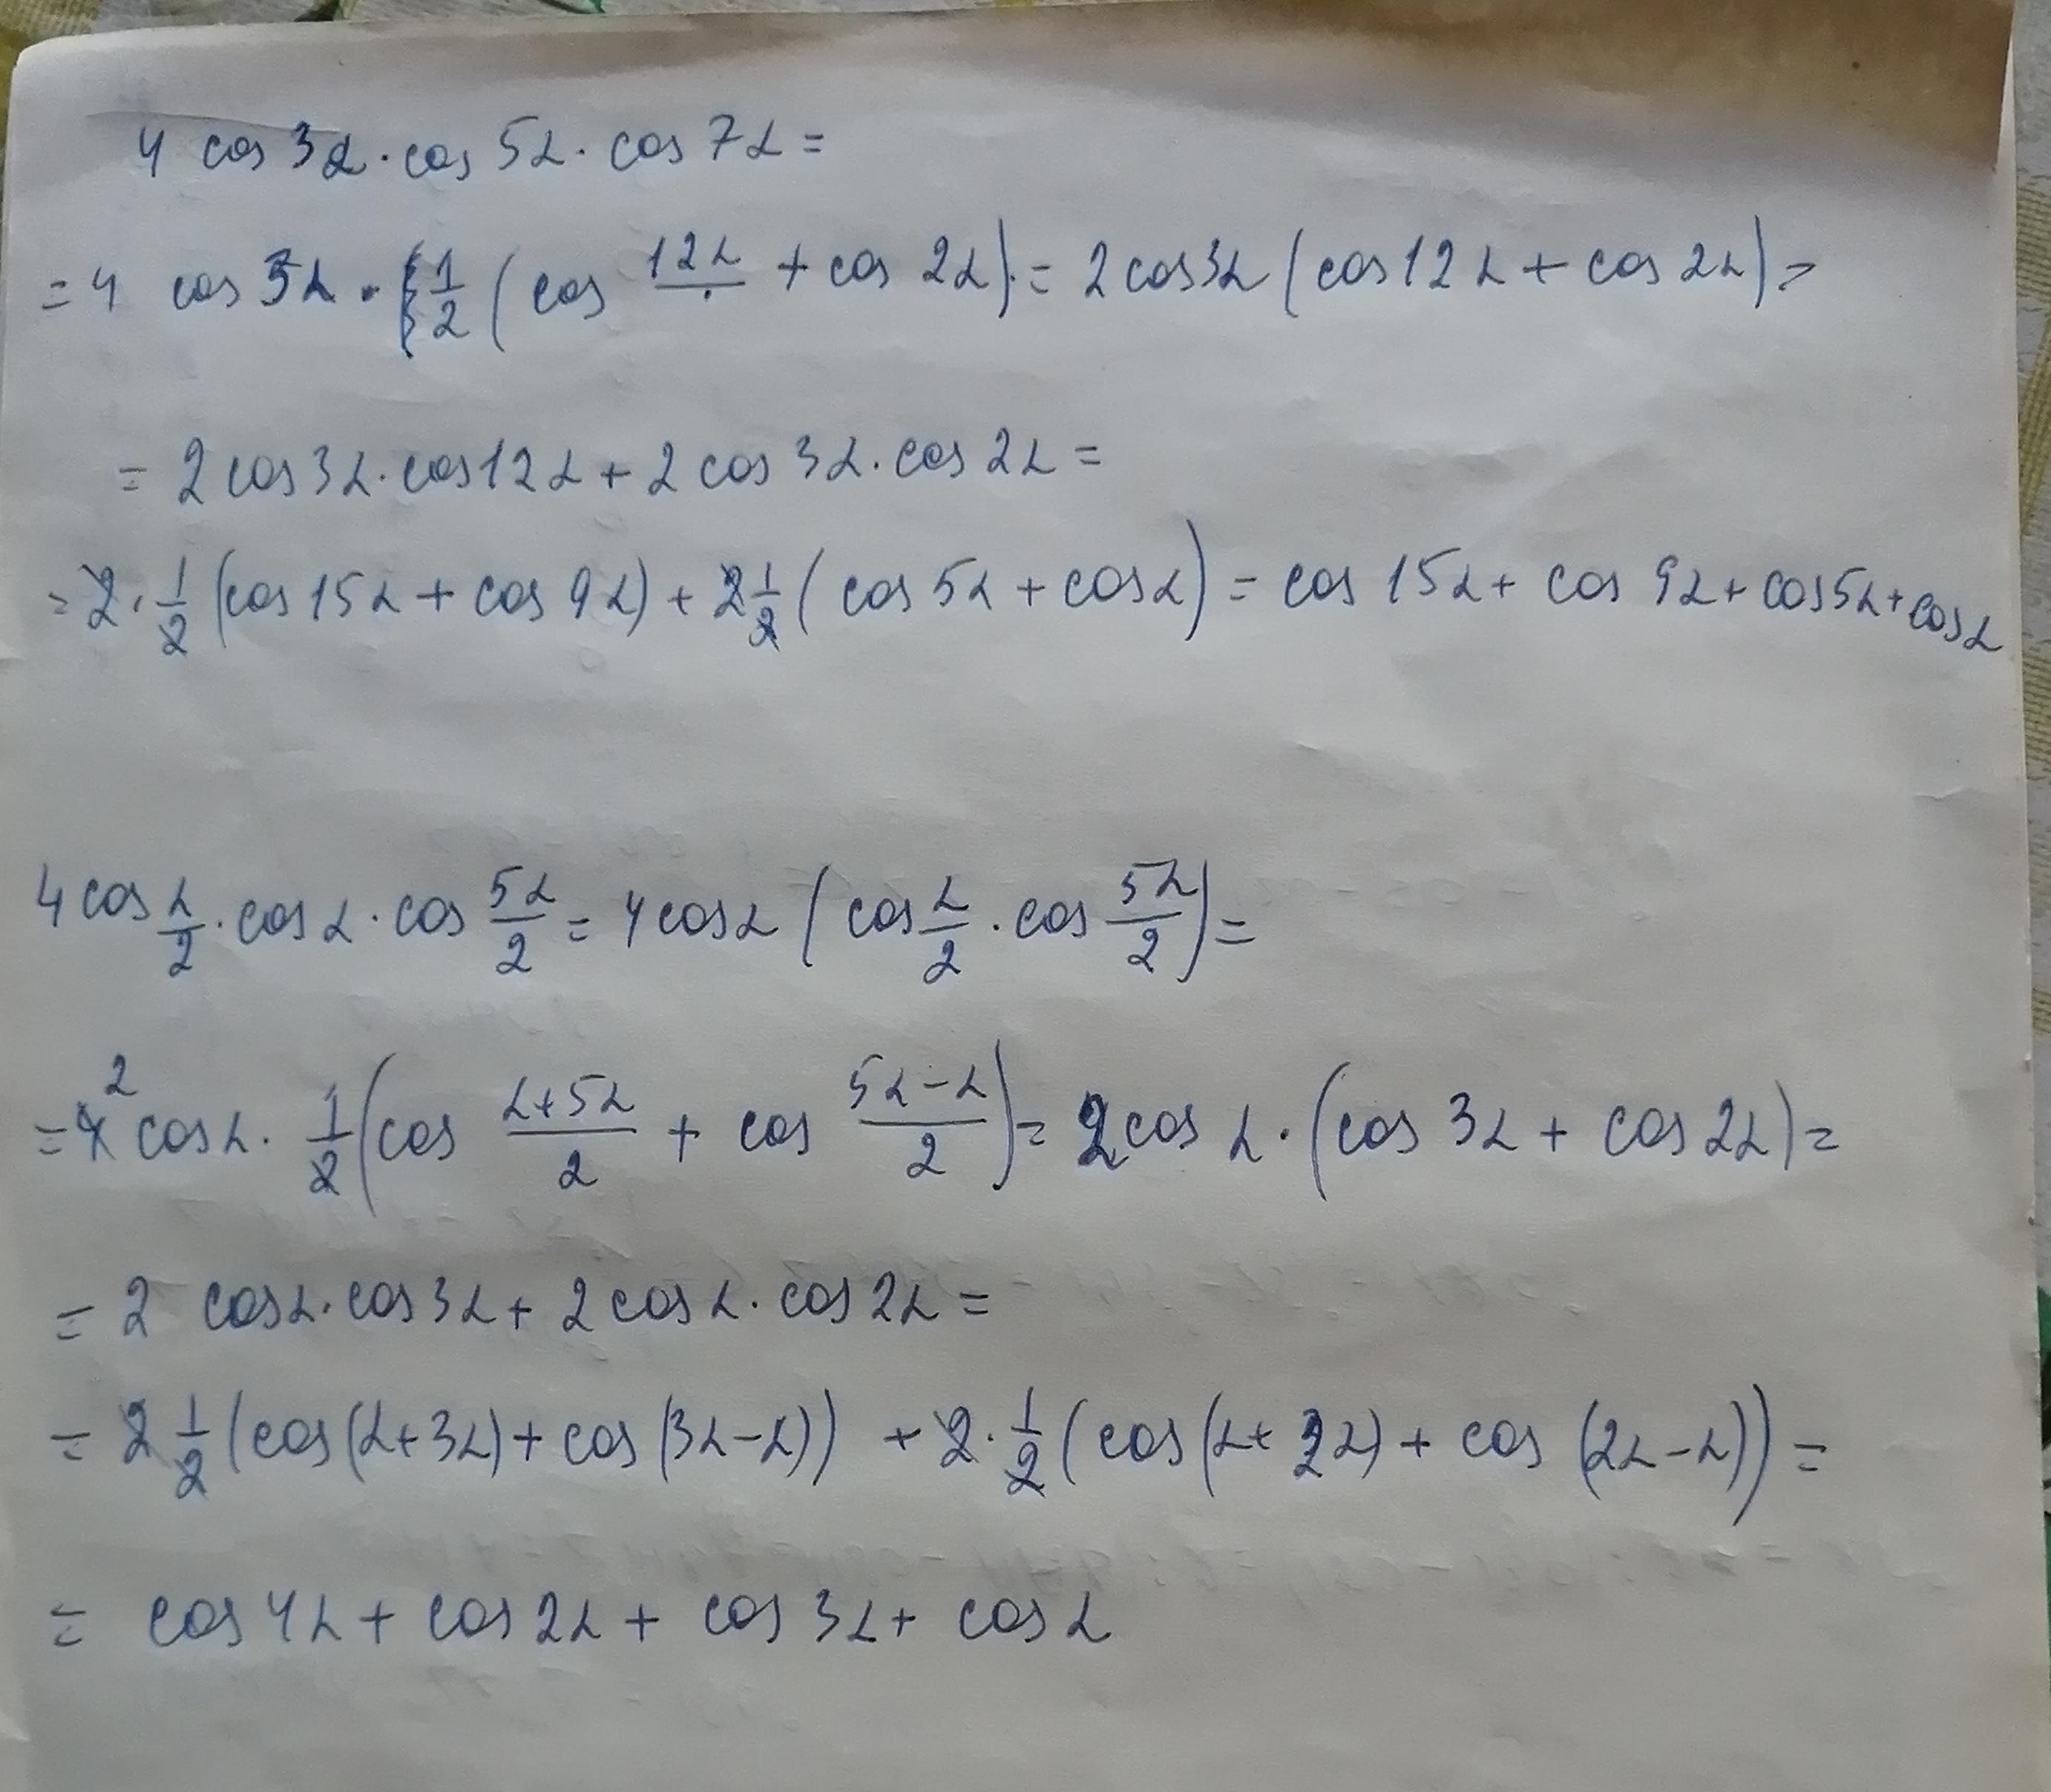 4 cos 3α · cos 5α · cos 7α =
= 4 cos 3α · 1/2 (cos 12α + cos 2α) = 2 cos 3α (cos 12α + cos 2α) =
= 2 cos 3α · cos 12α + 2 cos 3α · cos 2α =
= 2 · 1/2 (cos 15α + cos 9α) + 2 1/2 (cos 5α + cos α) = cos 15α + cos 9α + cos 5α + cos α
4 cos α/2 · cos α · cos 5α/2 = 4 cos α (cos α/2 · cos 5α/2) =
= 4 2 cos α · 1/2 (cos (α+5α)/2 + cos (5α-α)/2) = 2 cos α · (cos 3α + cos 2α) =
= 2 cos α · cos 3α + 2 cos α · cos 2α =
= 2 1/2 (cos (α+3α) + cos (3α-α)) + 2 · 1/2 (cos (α+2α) + cos (2α-α)) =
= cos 4α + cos 2α + cos 3α + cos α